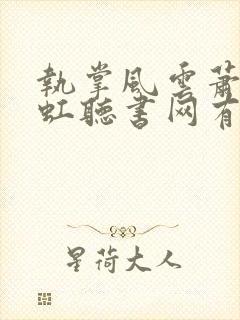 執掌風雲蕭
虹聽書网有
星荷大人